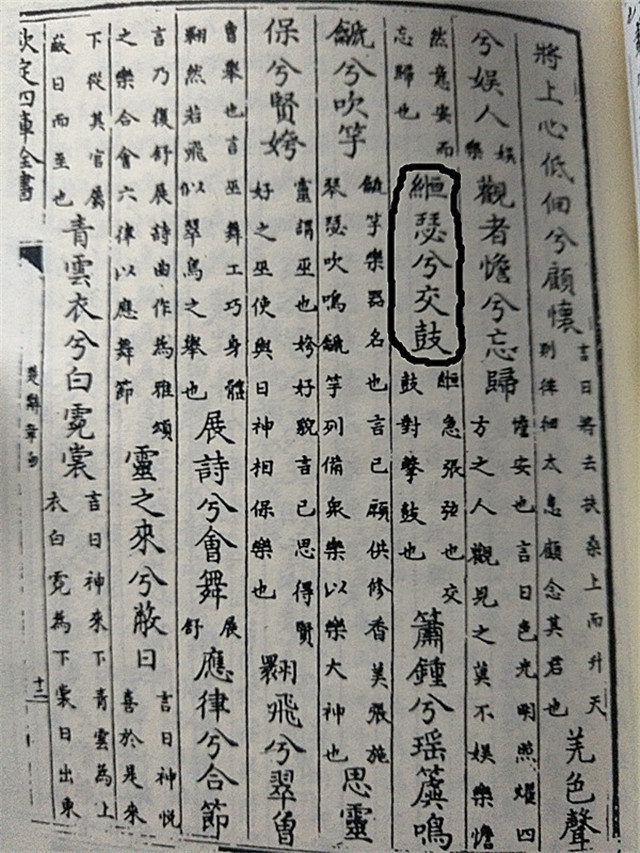 將上心低佪兮顧懷言日將去扶桑上而升天則徘徊太息顧念其君也羌色聲
兮娛人娛樂觀者憺兮忘歸憺安也言日色光明照燿四方之人觀見之莫不娛樂憺
然意安而忘歸也緪瑟兮交鼓緪急張弦也交鼓對擊鼓也簫鍾兮瑤簴鳴
䶵兮吹竽䶵竽樂器名也言己願供修香美張施琴瑟吹鳴䶵竽列備衆樂以樂大神也思靈
保兮賢姱靈謂巫也姱好貌言己思得賢好之巫使與日神相保樂也翾飛兮翠曾
曾舉也言巫舞工巧身體翾然若飛似翠鳥之舉也展詩兮會舞展舒應律兮合節
言乃復舒展詩曲作為雅頌之樂合會六律以應舞節靈之來兮蔽日言日神悅喜於是來
下從其官屬蔽日而至也青雲衣兮白霓裳言日神來下青雲為上衣白霓為下裳日出東
欽定四庫全書
楚辭章句
十二